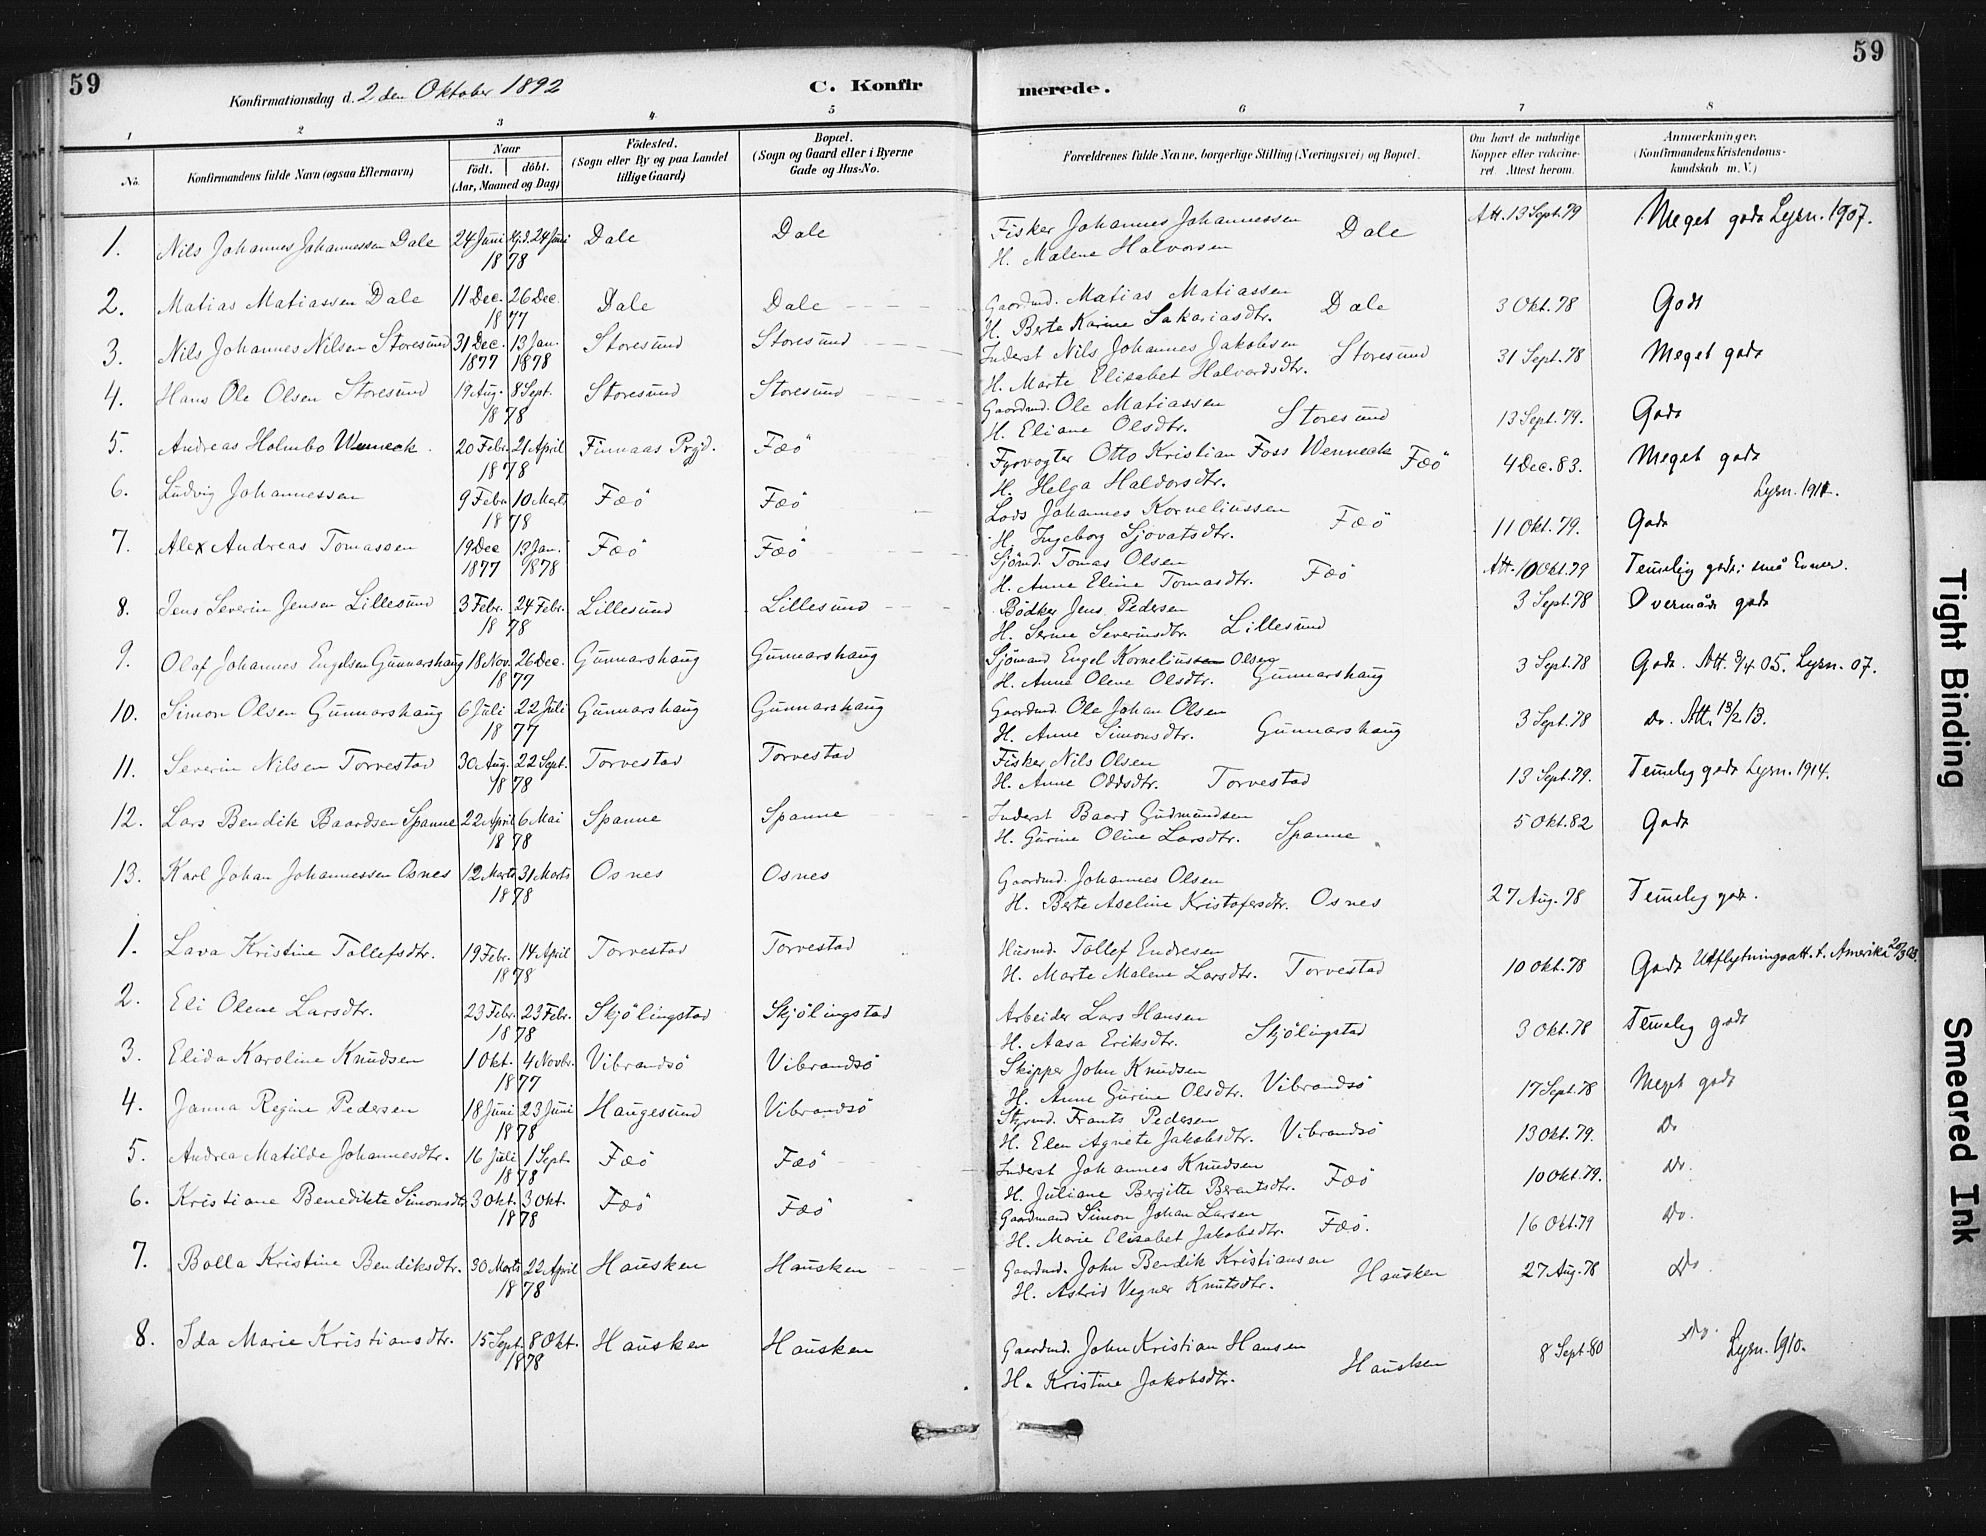 59
Konfirmationsdag d. 2 den Oktober 1892
C. Konfirmerede.
59
1 2 3 4 5 6 7 8
No.
Konfirmandens fulde Navn (ogsaa Efternavn)
Naar
födt. döbt.
(Aar, Maaned og Dag)
Födested.
(Sogn eller By og paa Landet
tillige Gaard)
Bopæl.
(Sogn og Gaard eller i Byerne
Gade og Hus-No.
Forældrenes fulde Navne, borgerlige Stilling (Næringsvei) og Bopæl.
Om havt de naturlige
Kopper eller vakcine-
ret. Attest herom.
Anmærkninger.
(Konfirmandens Kristendoms-
kundskab m. V.)
1. Nils Johannes Johannessen Dale 24 Juni Hj.d. 24 Juni 1878 Dale Dale Fisker Johannes Johannessen Dale Att. 13 Sept. 79 Meget godt Lysn. 1907.
H. Malene Halvorsen
2. Matias Matiassen Dale 11 Dec. 26 Dec. 1877 Dale Dale Gaardmd. Matias Matiassen Dale 3 Okt. 78 Godt
H. Berte Karine Sakariasdtr.
3. Nils Johannes Nilsen Storesund 31 Dec. 1877 13 Jan. 1878 Storesund Storesund Inderst Nils Johannes Jakobsen Storesund 31 Sept. 78 Meget godt
H. Marte Elisabet Halvordsdtr.
4. Hans Ole Olsen Storesund 19 Aug. 8 Sept. 1878 Storesund Storesund Gaardmd. Ole Matiassen Storesund 13 Sept. 79. Godt
H. Eliane Olsdtr.
5. Andreas Holmbo Wenneck 20 Febr. 21 April 1878 Finnaas Prgjd. Fæö Fyrvogter Otto Kristian Foss Wenneck Fæö 4 Dec. 83. Meget godt
H. Helga Haldorsdtr.
6. Ludvig Johannessen 9 Febr. 10 Marts 1878 Fæö Fæö Lods Johannes Korneliussen Fæö 11 Okt. 79. Godt Lysn. 1911.
H. Ingeborg Sjovatsdtr.
7. Alex Andreas Tomassen 19 Dec 1877 13 Jan. 1878 Fæö Fæö Sjömd. Tomas Olsen Fæö Att. 10 Okt. 79 Temelig godt; små Evner.
H. Anne Eline Tomasdtr.
8. Jens Severin Jensen Lillesund 3 Febr. 24 Febr. 1878 Lillesund Lillesund Bødker Jens Pedersen Lillesund 3 Sept. 78 Overmåde godt
H. Serine Severinsdtr.
9. Olaf Johannes Engelsen Gunnarshaug 18 Nov. 26 Dec. 1877 Gunnarshaug Gunnarshaug Sjömand Engel Korneliussen Olsen Gunnarshaug 3 Sept. 78 Godt. Att. 8/4 05. Lysn. 07.
H. Anne Olene Olsdtr.
10. Simon Olsen Gunnarshaug 6 Juli 22 Juli 1877 Gunnarshaug Gunnarshaug Gaardmd. Ole Johan Olsen Gunnarshaug 3 Sept. 78 Do. Att. 13/2 13.
H. Anne Simonsdtr.
11. Severin Nilsen Torvestad 30 Aug. 22 Sept. 1878 Torvestad Torvestad Fisker Nils Olsen Torvestad 13 Sept. 79. Temelig godt Lysn. 1914.
H. Anne Oddsdtr.
12. Lars Bendik Baardsen Spanne 22 April 6 Mai 1878 Spanne Spanne Inderst Baard Gudmundsen Spanne 5 Okt. 82 Godt
H. Gurine Oline Larsdtr.
13. Karl Johan Johannessen Osnes 12 Marts 31 Marts 1878 Osnes Osnes Gaardmd. Johannes Olsen Osnes 27 Aug. 78 Temelig godt.
H. Berte Aseline Kristofersdtr.
1. Lava Kristine Tollefsdtr. 19 Febr. 14 April 1878 Torvestad Torvestad Husmd. Tollef Endresen Torvestad 10 Okt. 78 Godt Utflytningsatt. t. Amerika
H. Marte Malene Larsdtr.
2. Eli Olene Larsdtr. 23 Febr. 23 Febr. 1878 Skjölingstad Skjölingstad Arbeider Lars Hansen Skjölingstad 3 Okt. 78 Temelig godt
H. Aasa Eriksdtr.
3. Elida Karoline Knudsen 1 Okt. 4 Novbr. 1877 Vibrandsö Vibrandsö Skipper John Knudsen Vibrandsö 17 Sept. 78 Meget godt
H. Anne Gurine Olsdtr.
4. Janna Regine Pedersen 18 Juni 23 Juni 1878 Haugesund Vibrandsö Styrmd. Frants Pedersen Vibrandsö 13 Okt. 79. Do
H. Elen Agnete Jakobsdtr.
5. Andrea Matilde Johannesdtr. 16 Juli 1 Sept. 1878 Fæö Fæö Inderst Johannes Knudsen Fæö 10 Okt. 79. Do.
H. Juliane Bergitte Berentsdtr.
6. Kristiane Benedikte Simonsdtr. 3 Okt. 3 Okt. 1878 Fæö Fæö Gaardmand Simon Johan Larsen Fæö. 16 Okt. 79 Do.
H. Marie Elisabet Jakobsdtr.
7. Bolla Kristine Bendiksdtr. 30 Marts 22 April 1878 Hausken Hausken Gaardmd. John Bendik Kristiansen Hausken 27 Aug. 78 Do.
H. Astrid Vegner Knutsdtr.
8. Ida Marie Kristiansdtr. 15 Sept. 8 Okt. 1878 Hausken Hausken Gaardmd. John Kristian Hansen Hausken 8 Sept. 80 Do. Lysn. 1910.
H. Kristine Jakobsdtr.
Tight Binding
Smeared Ink